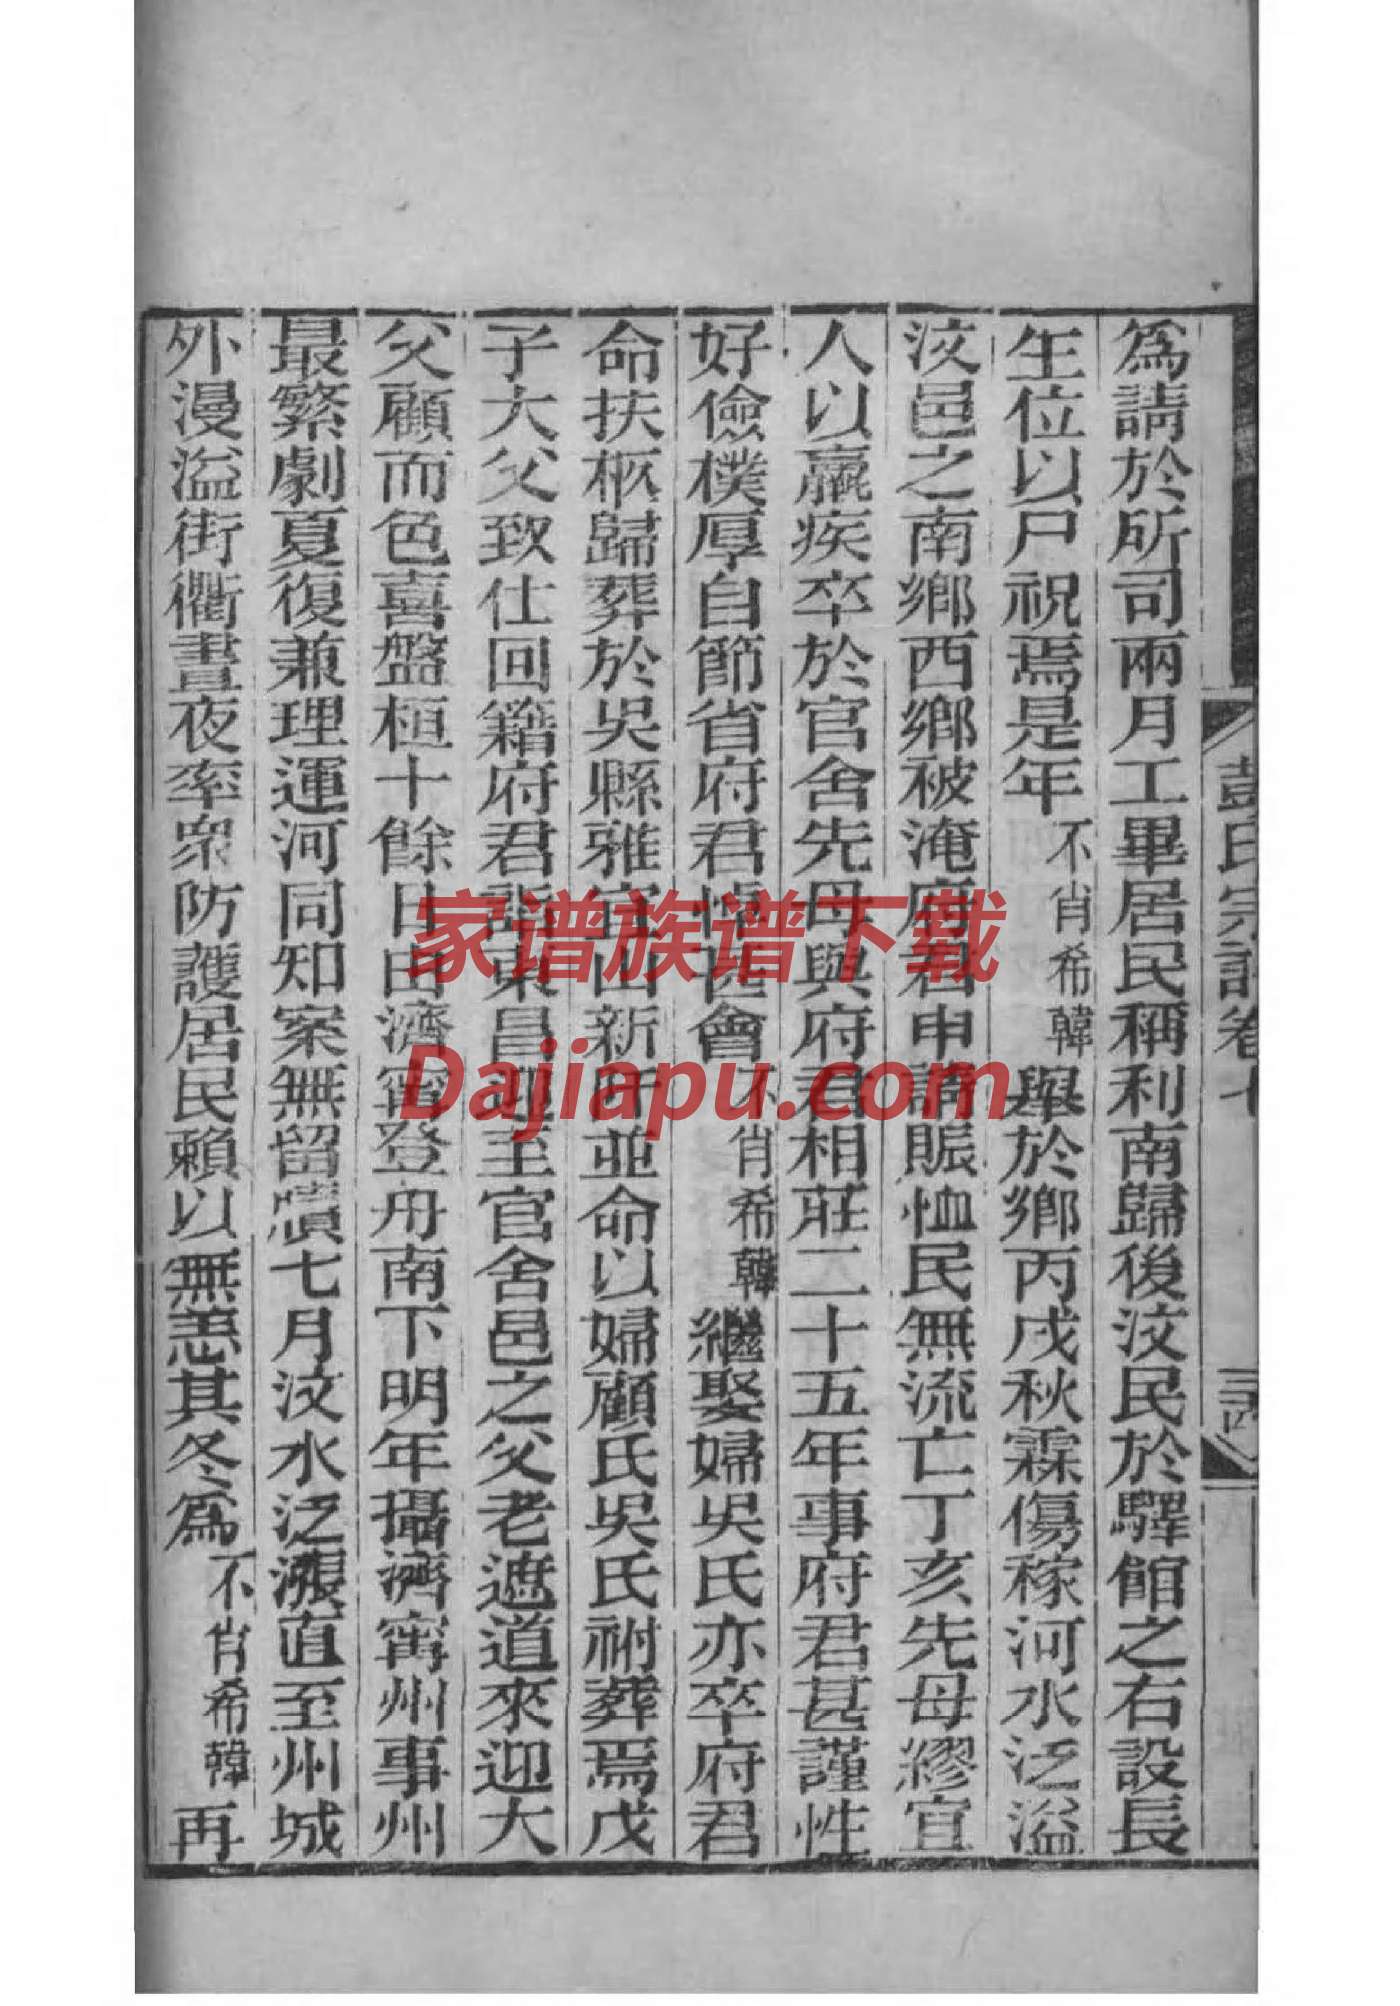 彭氏宗譜卷七
三四
為請於所司兩月工畢居民稱利南歸後汶民於驛館之右設長
生位以尸祝焉是年不肖希韓舉於鄉丙戌秋霖傷稼河水泛溢
汶邑之南鄉西鄉被淹府君申請賑恤民無流亡丁亥先母繆宜
人以羸疾卒於官舍先母與府君相莊二十五年事府君甚謹性
好儉樸厚自節省府君悼甚會不肖希韓繼娶婦吳氏亦卒府君
命扶柩歸葬於吳縣雅宜山新阡並命以婦顧氏吳氏祔葬焉戊
子大父致仕回籍府君謁東昌迎至官舍邑之父老遮道來迎大
父顧而色喜盤桓十餘日由濟甯登舟南下明年攝濟甯州事州
最繁劇夏復兼理運河同知案無留牘七月汶水泛漲直至州城
外漫溢街衢晝夜率眾防護居民賴以無恙其冬為不肖希韓再
家谱族谱下载
Dajiapu.com